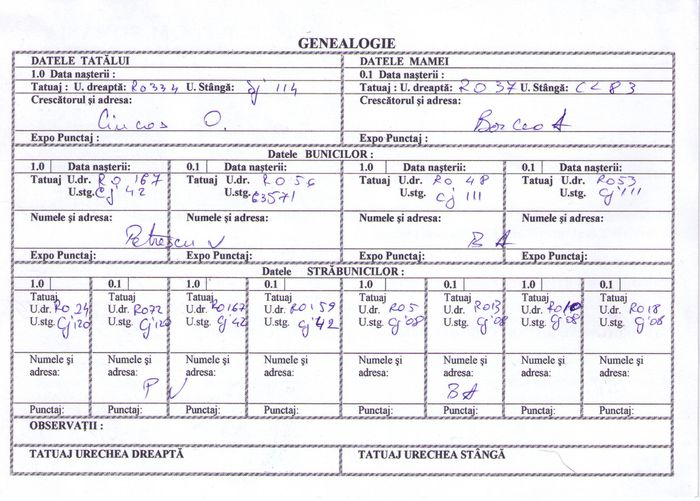 GENEALOGIE
DATELE TATĂLUI
DATELE MAMEI
1.0 Data nașterii :
0.1 Data nașterii :
Tatuaj : U. dreaptă: RO334 U. Stângă: Cj 114
Tatuaj : U. dreaptă: RO 37 U. Stângă: C<83
Crescătorul și adresa:
Crescătorul și adresa:
O.
A
Expo Punctaj :
Expo Punctaj :
Datele BUNICILOR :
1.0 Data nașterii:
0.1 Data nașterii:
1.0 Data nașterii:
0.1 Data nașterii:
Tatuaj U.dr. RO 167
Tatuaj U.dr. RO 56
Tatuaj U.dr. RO 48
Tatuaj U.dr. RO53
U.stg. Cj 42
U.stg. 63571
U.stg. Cj 111
U.stg. Cj 111
Numele și adresa:
Numele și adresa:
Numele și adresa:
Numele și adresa:
Petrescu V
B A
Expo Punctaj:
Expo Punctaj:
Expo Punctaj:
Expo Punctaj:
Datele STRĂBUNICILOR :
1.0 0.1 1.0 0.1 1.0 0.1 1.0 0.1
Tatuaj Tatuaj Tatuaj Tatuaj Tatuaj Tatuaj Tatuaj Tatuaj
U.dr. RO 24 U.dr. RO72 U.dr. RO167 U.dr. RO159 U.dr. RO5 U.dr. RO13 U.dr. RO10 U.dr. RO 18
U.stg. Cj 120 U.stg. Cj 120 U.stg. Cj 42 U.stg. Cj 42 U.stg. Cj 08 U.stg. Cj 08 U.stg. Cj 08 U.stg. Cj 08
Numele și Numele și Numele și Numele și Numele și Numele și Numele și Numele și
adresa: adresa: adresa: adresa: adresa: adresa: adresa: adresa:
P V
B A
Punctaj: Punctaj: Punctaj: Punctaj: Punctaj: Punctaj: Punctaj: Punctaj:
OBSERVAȚII :
TATUAJ URECHEA DREAPTĂ
TATUAJ URECHEA STÂNGĂ